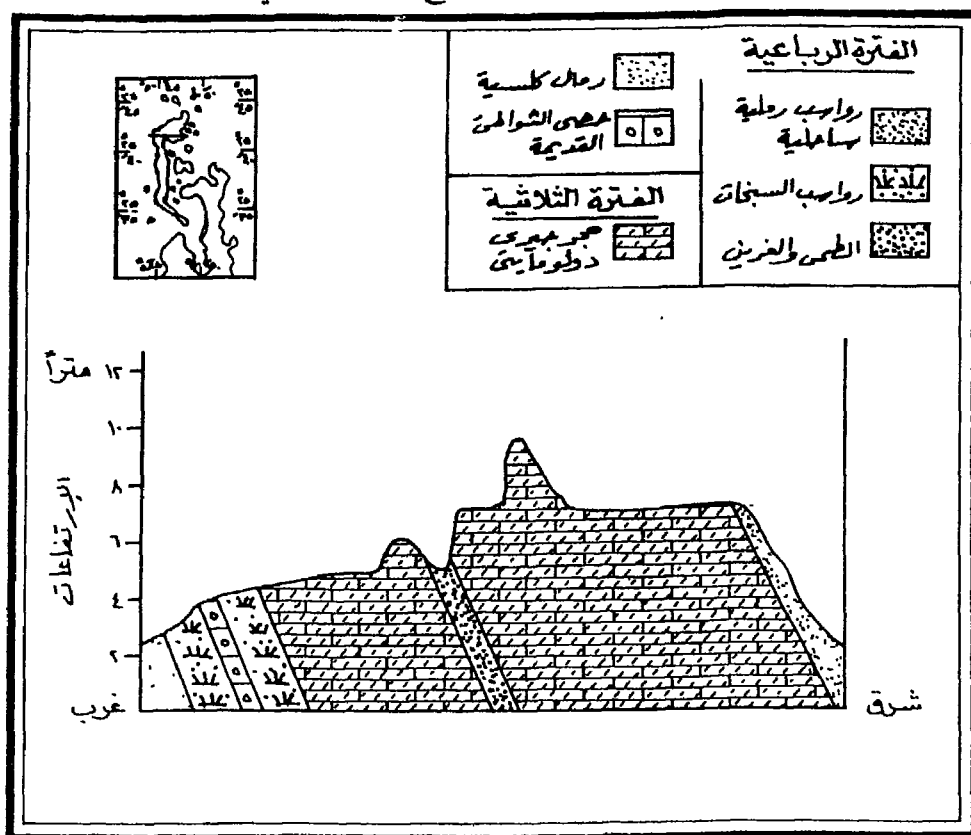 الفترة الرباعية
رواسب رملية
ساحلية
رواسب السبخات
الطمى والغرين
رمال كلسية
حصى الشواطئ
القديمة
الفترة الثلاثية
حجر جيرى
دولومايتى
١٢ متراً
١٠
٨
٦
٤
٢
الإرتفاعات
غرب
شرق